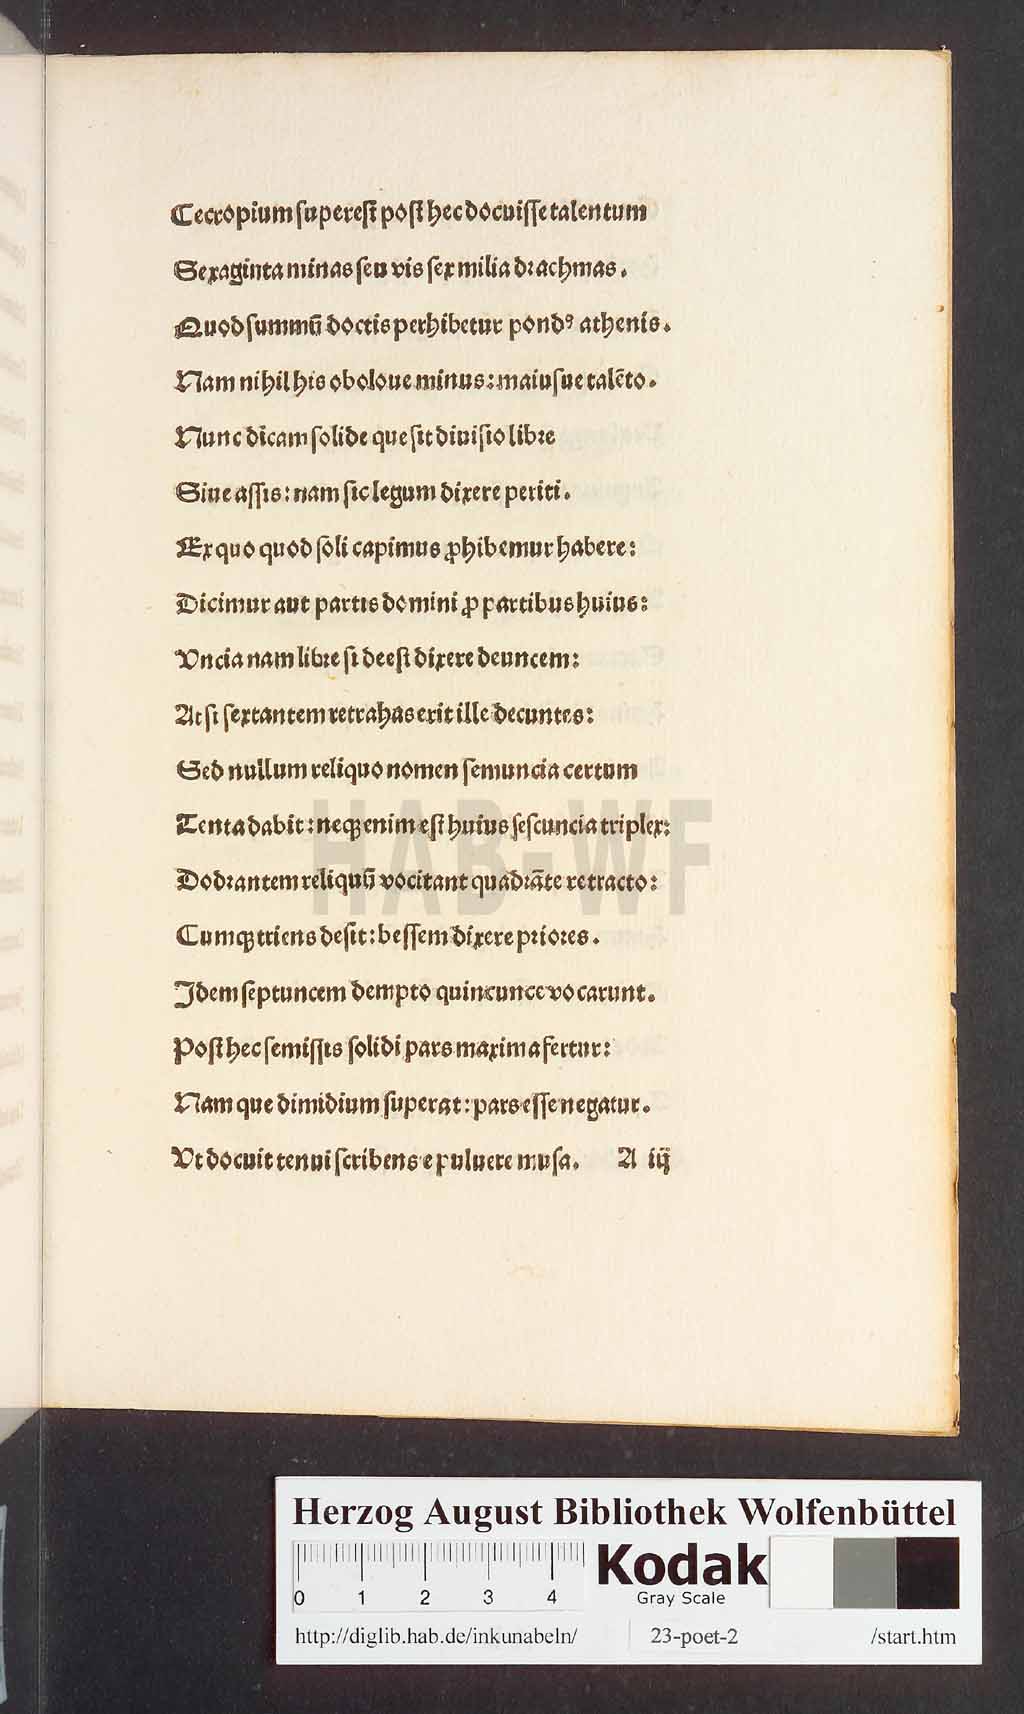 Cecropium ſupereſt poſt hec docuiſſe talentum
Sexaginta minas ſeu vis ſex milia dꝛachmas.
Quod ſummū doctis perhibetur pondꝰ athenis.
Nam nihil his oboloue minus: maiuſue talēto.
Nunc dicam ſolide que ſit diuiſio libꝛe
Siue aſſis: nam ſic legum dixere periti.
Ex quo quod ſoli capimus ꝓhibemur habere:
Dicimur aut partis domini ꝓ partibus huius:
Vncia nam libꝛe ſi deeſt dixere deuncem:
At ſi ſextantem retrahas erit ille decuntes:
Sed nullum reliquo nomen ſemuncia certum
Tenta dabit: neqꝫ enim eſt huius ſeſcuncia triplex:
Dodꝛantem reliquū vocitant quadꝛāte retracto:
Cumqꝫ triens deſit: beſſem dixere pꝛioꝛes.
Idem ſeptuncem dempto quincunce vocarunt.
Poſt hec ſemiſſis ſolidi pars maxima fertur:
Nam que dimidium ſuperat: pars eſſe negatur.
Vt docuit tenui ſcribens e puluere muſa. A iij
HAB-WF
Herzog August Bibliothek Wolfenbüttel
0 1 2 3 4
Kodak
Gray Scale
http://diglib.hab.de/inkunabeln/ 23-poet-2 /start.htm